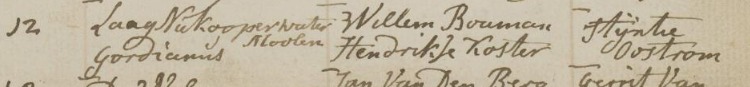 12 Laag Nukooperwater Willem Bouman Stijntie
Moolen
Gordianus Hendrikje Koster Oostrom
Jan Van Den Berg Gerrit Van